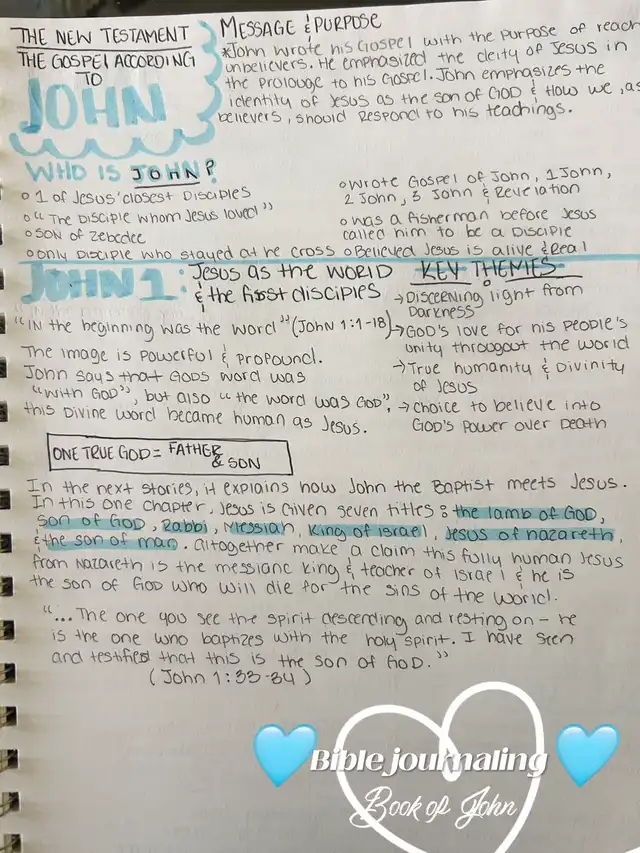 THE NEW TESTAMENT
THE GOSPEL ACCORDING
TO
JOHN
MESSAGE & PURPOSE
*John wrote his Gospel with the purpose of reach
unbelievers. He emphasized the deity of Jesus in
the prolouge to his Gospel. John emphasizes the
identity of Jesus as the son of GOD & How we, as
believers, should respond to his teachings.
WHO IS JOHN?
o 1 of Jesus' closest Disciples
o "The Disciple whom Jesus loved"
o SON of Zebedee
o only Disciple who stayed at he cross
o wrote Gospel of John, 1 John,
2 John, 3 John & Revelation
o was a fisherman before Jesus
called him to be a Disciple
o Believed Jesus is alive & Real
JOHN 1: Jesus as the WORLD
& the first disciples
"IN the beginning was the word" (John 1:1-18)
The image is powerful & profound.
John says that GODS word was
"with GOD", but also "the word was GOD".
this Divine word became human as Jesus.
KEY THEMES
→ Discerning light from
Darkness
→ GOD's love for his people's
unity througout the world
→ True humanity & Divinity
of Jesus
→ choice to believe into
GOD's power over Death
ONE TRUE GOD = FATHER
& SON
In the next stories, it explains how John the Baptist meets Jesus.
In this one chapter, Jesus is given seven titles: the lamb of GOD,
son of GOD, Rabbi, Messiah, King of Israel, Jesus of nazareth,
& the son of man. altogether make a claim this fully human Jesus
from Nazareth is the messianc king & teacher of Israel & he is
the son of GOD who will die for the sins of the world.
"... The one you see the spirit descending and resting on - he
is the one who baptizes with the holy spirit. I have seen
and testified that this is the son of GOD."
(John 1:33-34)
Bible journaling
Book of John